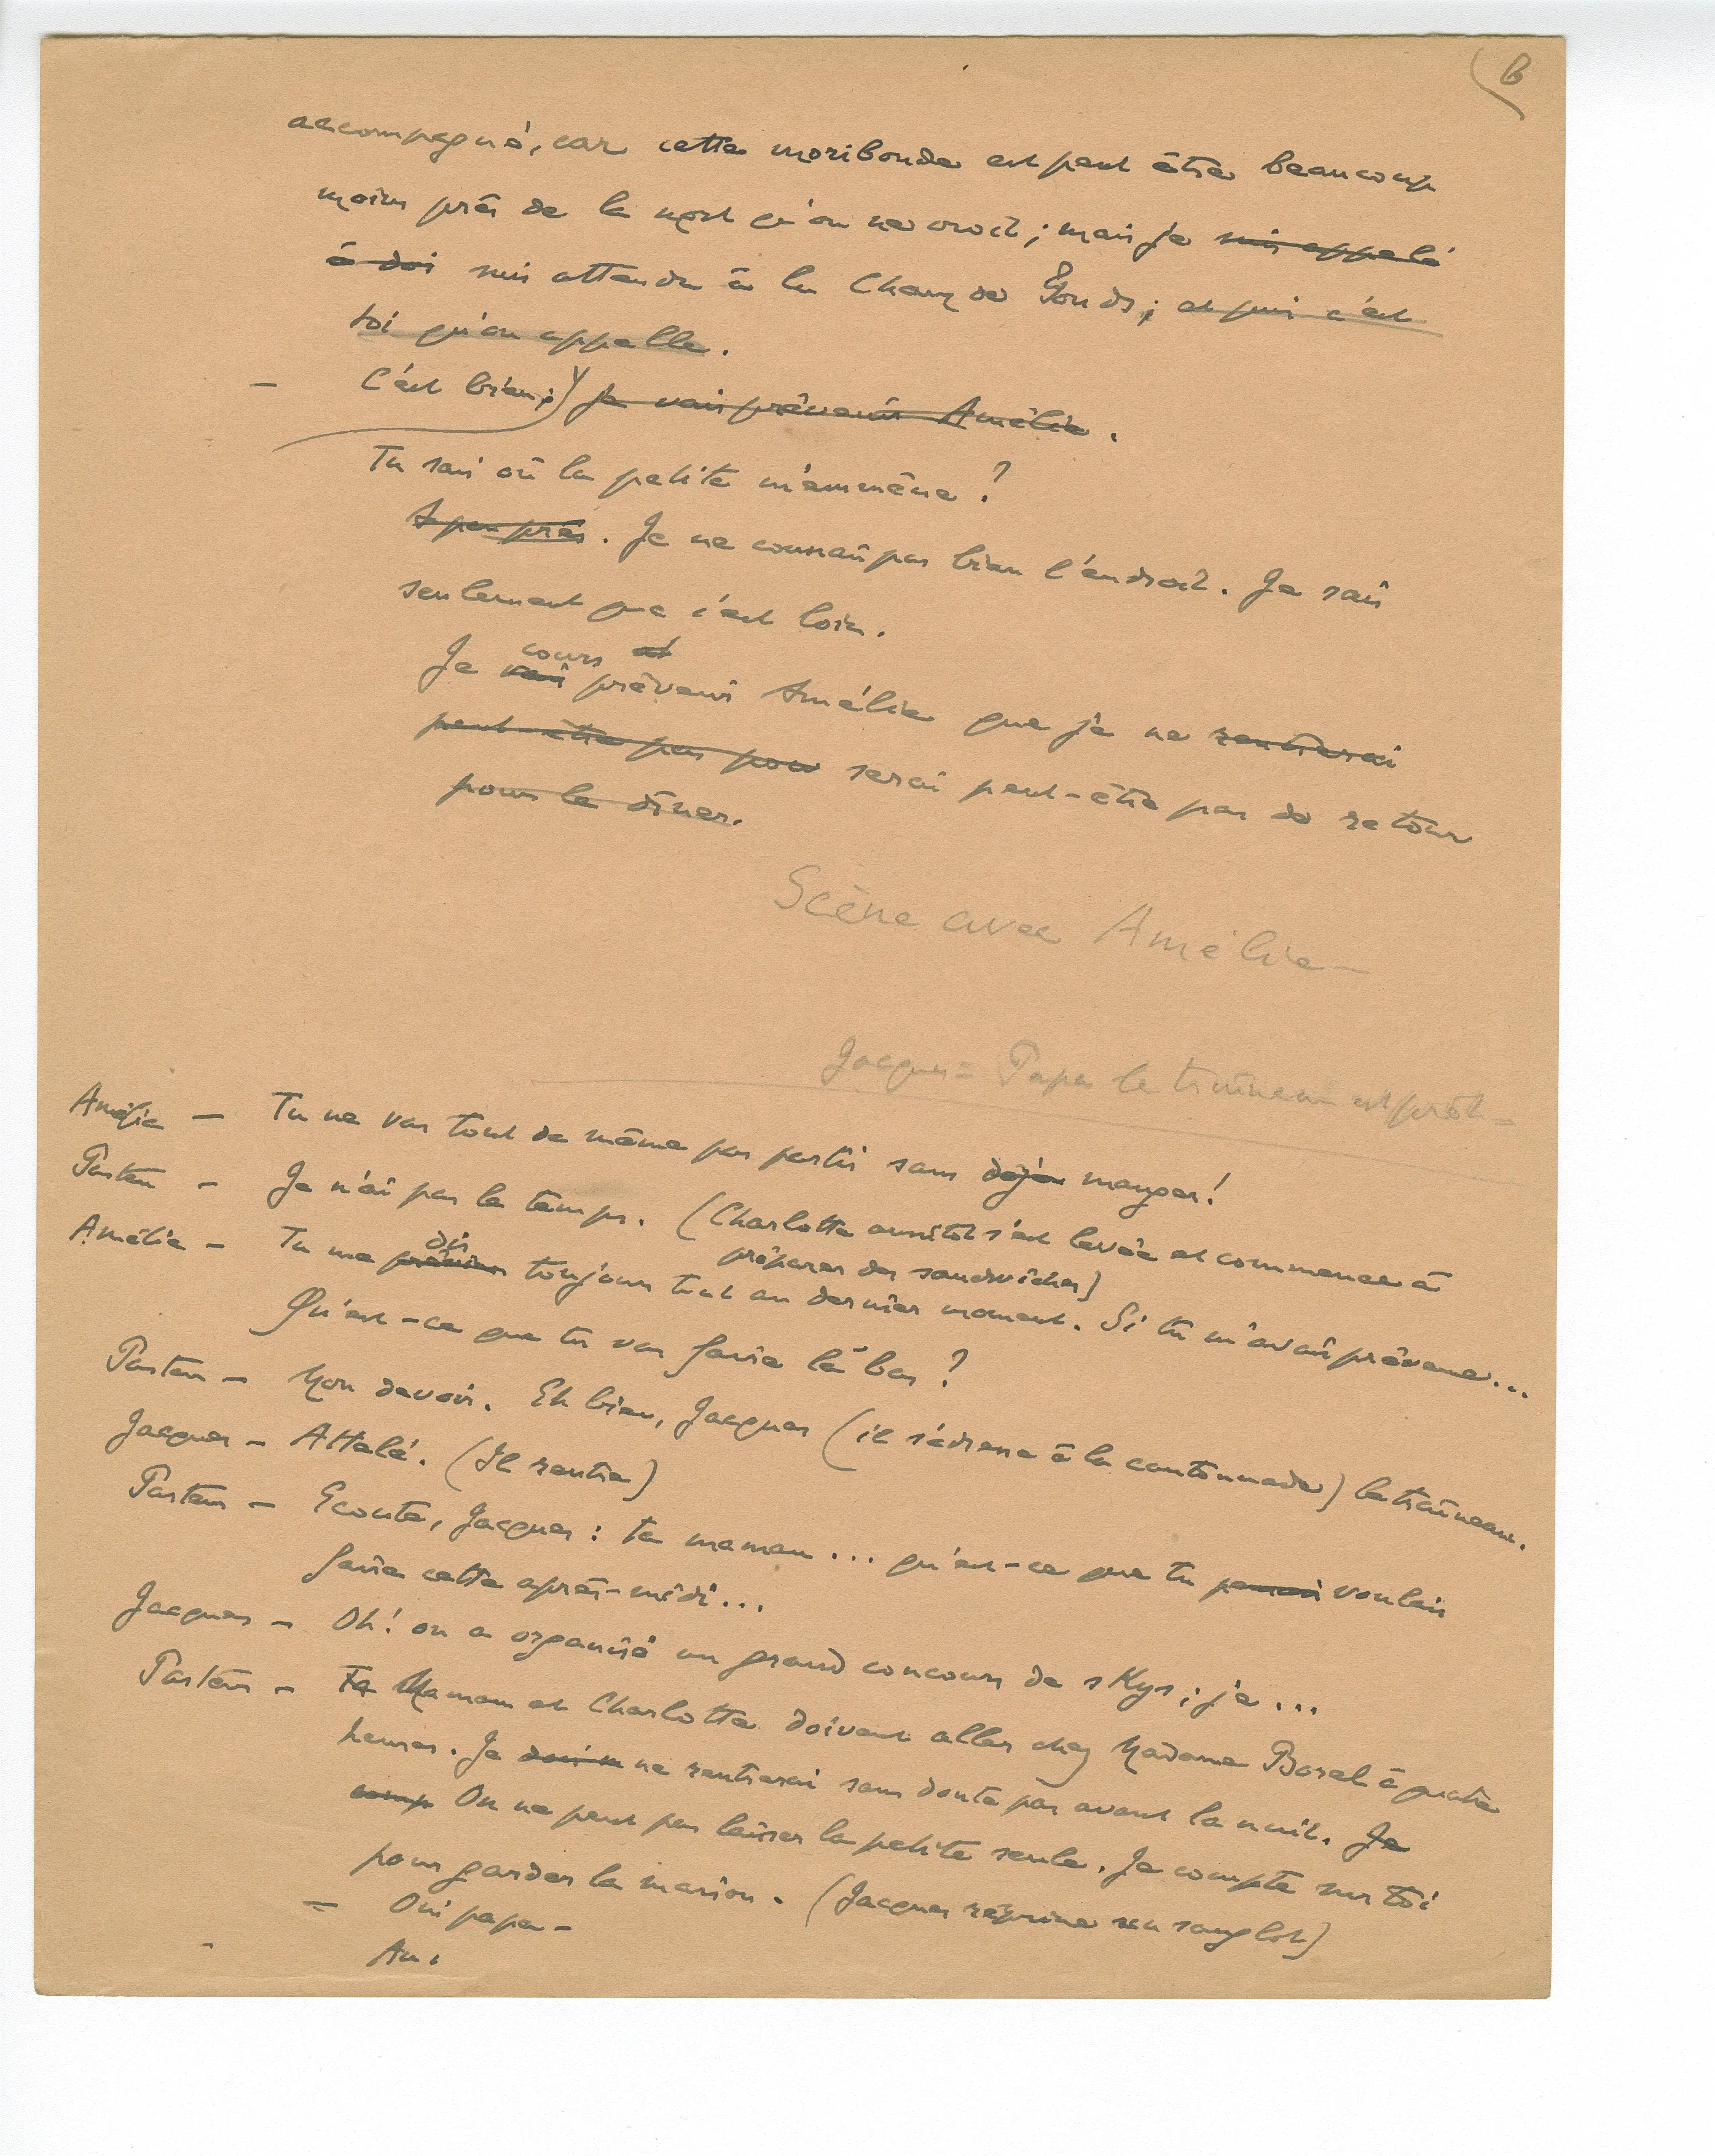 6
accompagné, car cette moribonde est peut être beaucoup
moins près de la mort qu'on ne croit ; mais je suis appelé
à doi suis attendu à la Chaux de Fonds ; et puis c'est
toi qu'on appelle.
— C'est bien ; Je vais prévenir Amélie.
Tu sais où la petite m'emmène ?
A peu près. Je ne connais pas bien l'endroit. Je sais
seulement que c'est loin.
cours et
Je vais prévenir Amélie que je ne rentrerai
peut-être pas pour serai peut-être pas de retour
pour le dîner.
Scène avec Amélie —
Jacques = Papa le traîneau est prêt —
Amélie — Tu ne vas tout de même pas partir sans déjeu manger !
Pasteur — Je n'ai pas le temps. (Charlotte aussitôt s'est levée et commence à
préparer des sandwiches)
dis
Amélie — Tu me préviens toujours tout au dernier moment. Si tu m'avais prévenue...
Qu'est-ce que tu vas faire là bas ?
Pasteur — Mon devoir. Eh bien, Jacques (il s'adresse à la cantonnade) le traîneau.
Jacques — Attelé. (Il rentre)
Pasteur — Ecoute, Jacques : ta maman... qu'est-ce que tu pensais voulais
faire cette après-midi...
Jacques — Oh ! on a organisé un grand concours de skys ; je...
Pasteur — Ta Maman et Charlotte doivent aller chez Madame Borel à quatre
heures. Je ne rentrerai sans doute pas avant la nuit. Je
comp On ne peut pas laisser la petite seule. Je compte sur toi
pour garder la maison. (Jacques réprime un sanglot)
— Oui papa —
Am.